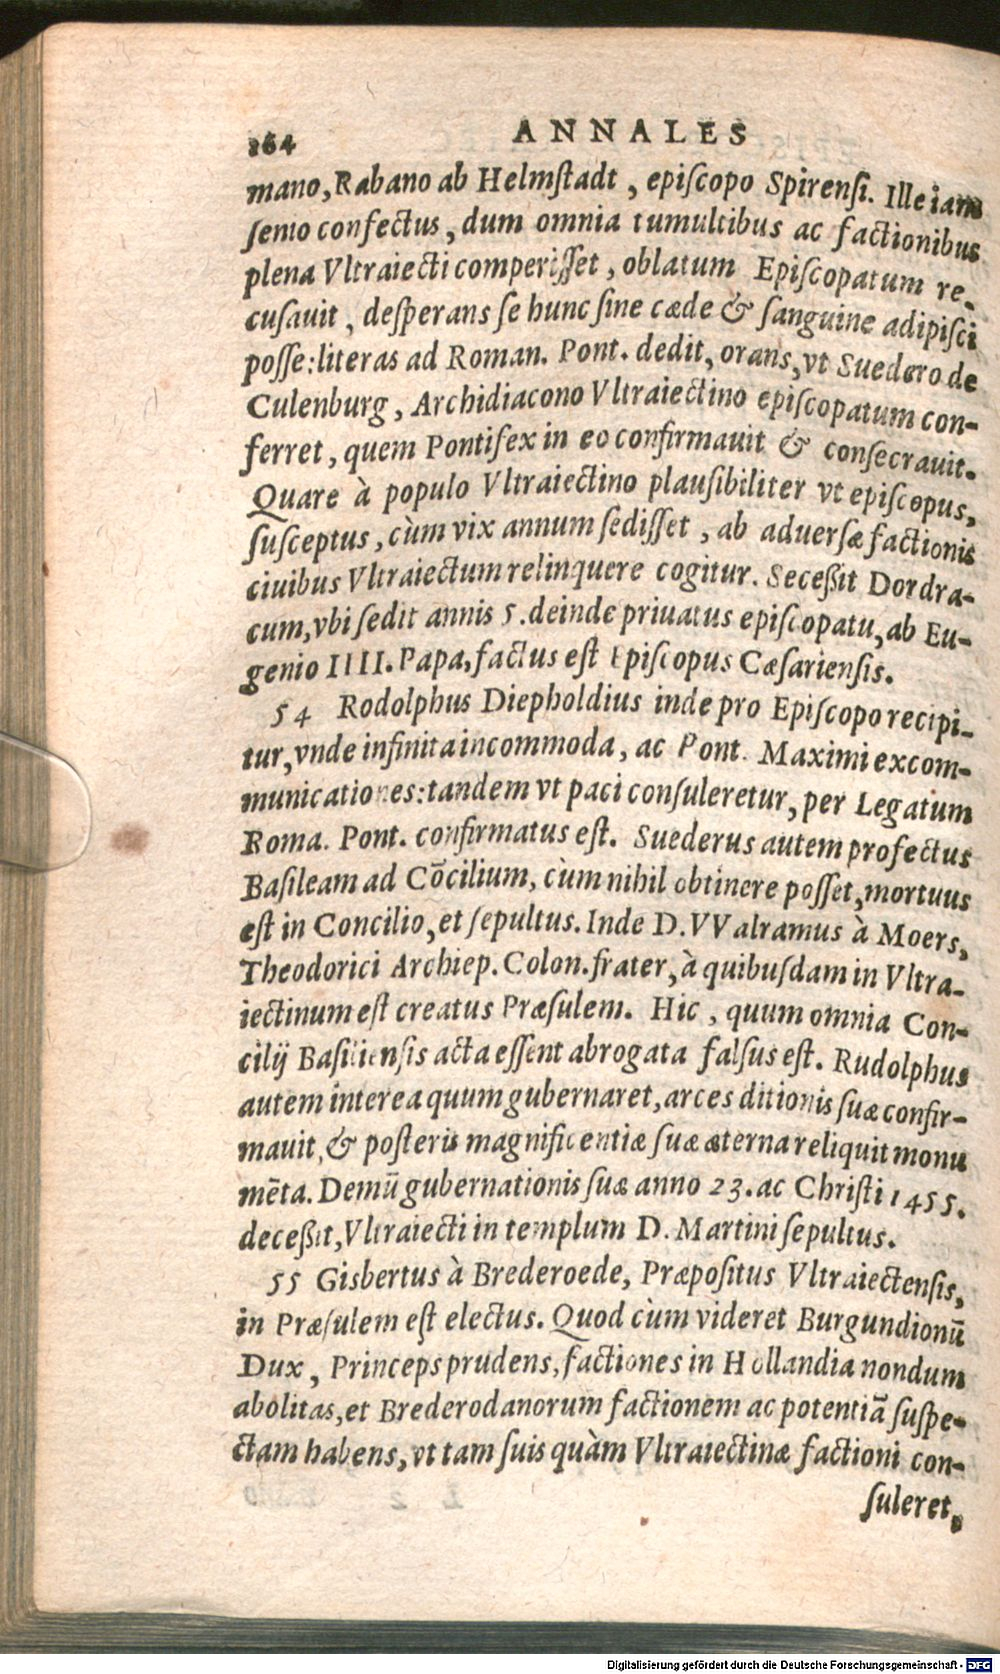 164 ANNALES
mano, Rabano ab Helmſtadt, epiſcopo Spirenſi. Ille iam
ſenio confectus, dum omnia tumultibus ac factionibus
plena Vltraiecti comperiſſet, oblatum Epiſcopatum re-
cuſauit, deſperans ſe hunc ſine cæde & ſanguine adipiſci
poſſe: literas ad Roman. Pont. dedit, orans, vt Suedero de
Culenburg, Archidiacono Vltraiectino epiſcopatum con-
ferret, quem Pontifex in eo confirmauit & conſecrauit.
Quare à populo Vltraiectino plauſibiliter vt epiſcopus,
ſuſceptus, cùm vix annum ſediſſet, ab aduerſæ factionis
ciuibus Vltraiectum relinquere cogitur. Seceßit Dordra-
cum, vbi ſedit annis 5. deinde priuatus epiſcopatu, ab Eu-
genio IIII. Papa, factus eſt Epiſcopus Cæſarienſis.
54 Rodolphus Diepholdius inde pro Epiſcopo recipi-
tur, vnde infinita incommoda, ac Pont. Maximi excom-
municationes: tandem vt paci conſuleretur, per Legatum
Roma. Pont. confirmatus eſt. Suederus autem profectus
Baſileam ad Cõcilium, cùm nihil obtinere poſſet, mortuus
eſt in Concilio, et ſepultus. Inde D. VValramus à Moers,
Theodorici Archiep. Colon. frater, à quibuſdam in Vltra-
iectinum eſt creatus Præſulem. Hic, quum omnia Con-
cilij Baſilienſis acta eſſent abrogata falſus eſt. Rudolphus
autem interea quum gubernaret, arces ditionis ſuæ confir-
mauit, & poſteris magnificentiæ ſuæ æterna reliquit monu
mẽta. Demũ gubernationis ſuæ anno 23. ac Chriſti 1455.
deceßit, Vltraiecti in templum D. Martini ſepultus.
55 Gisbertus à Brederoede, Præpoſitus Vltraiectenſis,
in Præſulem eſt electus. Quod cùm videret Burgundionũ
Dux, Princeps prudens, factiones in Hollandia nondum
abolitas, et Brederodanorum factionem ac potentiã ſuſpe-
ctam habens, vt tam ſuis quàm Vltraiectinæ factioni con-
ſuleret,
Digitalisierung gefördert durch die Deutsche Forschungsgemeinschaft - DFG